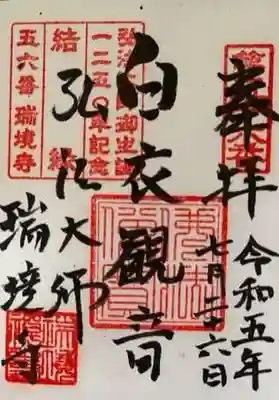 奉拝
令和五年
七月二十六日
白衣觀音
弘法大師
瑞境寺
弘法大師御生誕
一二五〇年記念
結縁
五六番瑞境寺